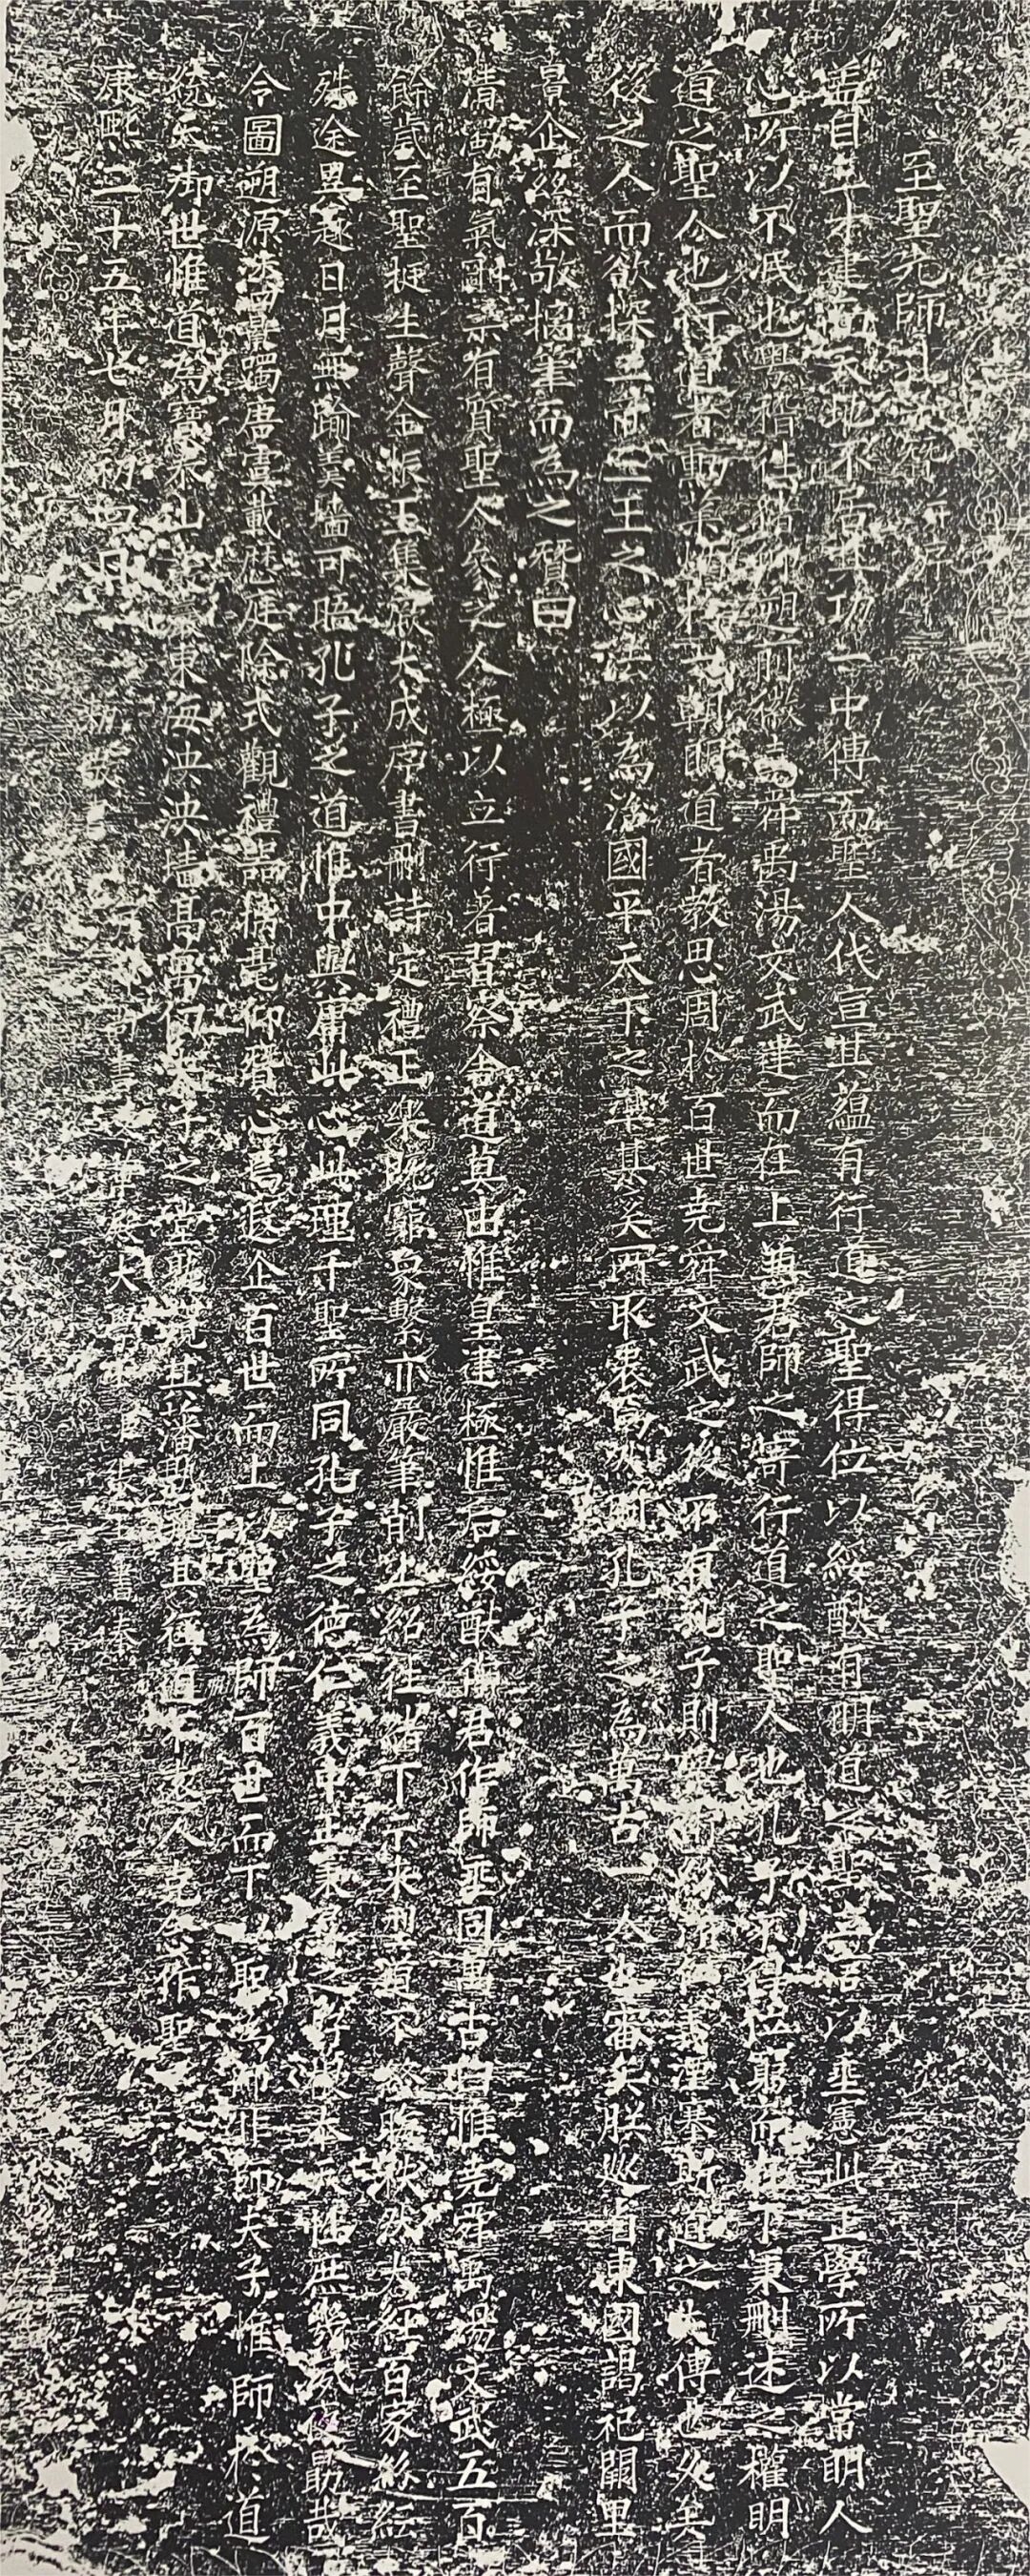 至聖先師孔子贊并序
蓋自三才建而天地不居其功一中傳而聖人代宣其蘊有行道之聖得位以綏猷有明道之聖立言以垂憲此正學所以常明人
心所以不泯也粵稽往緒仰溯前徽堯舜禹湯文武達而在上兼君師之寄行道之聖人也孔子不得位窮而在下秉刪述之權明
道之聖人也行道者勳業炳於一朝明道者教思周於百世堯舜文武之後不有孔子則學術紛淆仁義湮塞斯道之失傳也久矣
後之人而欲探二帝三王之心法以為治國平天下之準其奚所取衷焉然則孔子之為萬古一人也審矣朕巡省東國謁祀闕里
景企滋深敬摛筆而為之贊曰
清濁有氣剛柔有質聖人參之人極以立行著習察舍道莫由惟皇建極惟后綏猷作君作師垂統萬古曰惟堯舜禹湯文武五百
餘歲至聖挺生聲金振玉集厥大成序書刪詩定禮正樂既窮象繫亦嚴筆削上紹往緒下示來型道不終晦秩然大經百家紛紜
殊途異趣日月無踰羹墻可晤孔子之道惟中與庸此心此理千聖所同孔子之德仁義中正秉彝之好根本天性庶幾夙夜勗哉
今圖溯源洙泗景躅唐虞載歷庭除式觀禮器摛毫仰贊心焉遐企百世而上以聖為師百世而下以聖為師非師夫子惟師於道
統天御世惟道為寶泰山巖巖東海泱泱墻高萬仞夫子之堂孰窺其藩孰窺其徑道不遠人克念作聖
康熙二十五年七月初四日